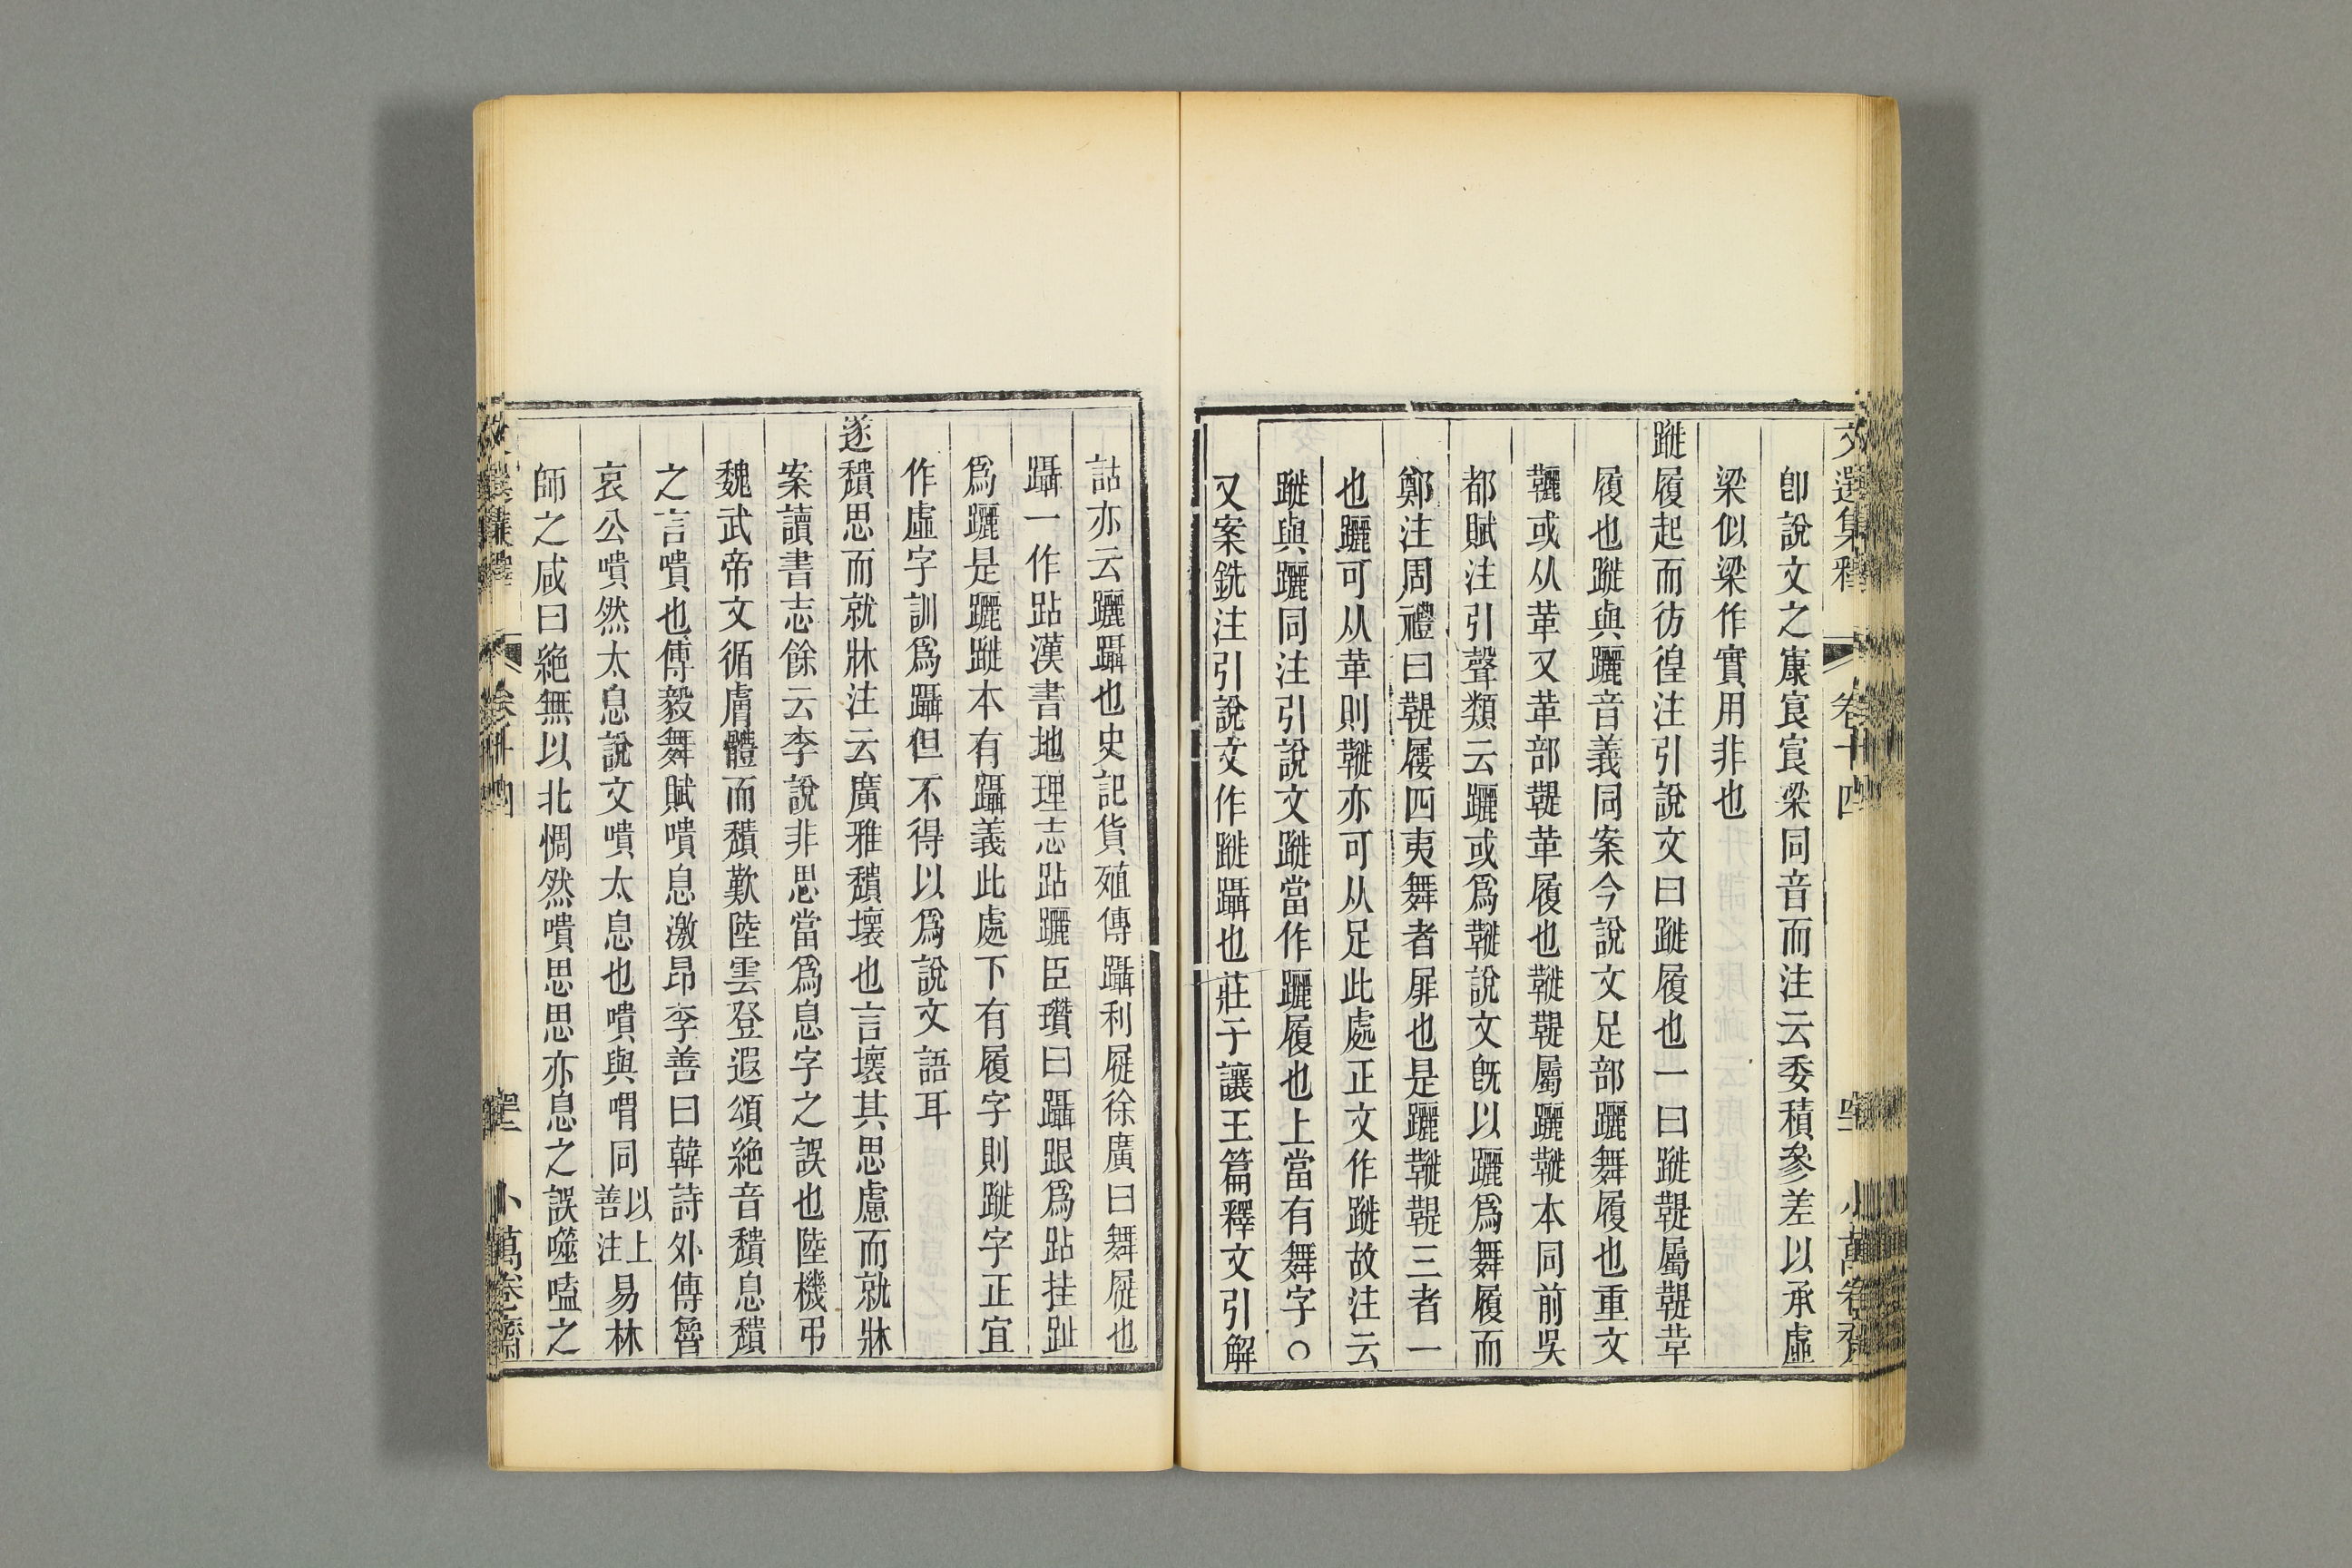 文選集釋 卷十四 小萬卷齋
卽說文之㝩㝗㝗梁同音而注云委積參差以承虛
梁似梁作實用非也
蹝履起而彷徨注引說文曰蹝履也一曰蹝鞮屬鞮革
履也蹝與躧音義同案今說文足部躧舞履也重文
𩌦或从革又革部鞮革履也鞾鞮屬躧𩌦本同前吳
都賦注引聲類云躧或爲𩌦說文旣以躧爲舞履而
鄭注周禮曰鞮屨四夷舞者屝也是躧𩌦鞮三者一
也躧可从革則𩌦亦可从足此處正文作蹝故注云
蹝與躧同注引說文蹝當作躧履也上當有舞字○
又案銑注引說文作蹝躡也莊子讓王篇釋文引解
詁亦云躧躡也史記貨殖傳躡利屣徐廣曰舞屣也
躡一作跕漢書地理志跕躧臣瓚曰躡跟爲跕挂趾
爲躧是躧蹝本有躡義此處下有履字則蹝字正宜
作虛字訓爲躡但不得以爲說文語耳
遂穨思而就牀注云廣雅穨壞也言壞其思慮而就牀
案讀書志餘云李說非思當爲息字之誤也陸機弔
魏武帝文循膚體而穨歎陸雲登遐頌絶音穨息穨
之言嘳也傅毅舞賦嘳息激昂李善曰韓詩外傳魯
哀公嘳然太息說文嘳太息也嘳與喟同以上善注易林
師之咸曰絶無以北惆然嘳思思亦息之誤噬嗑之
卷十四 小萬卷齋